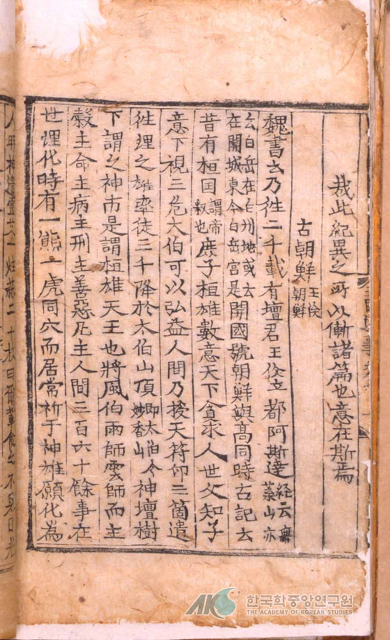 哉此紀異之所以慚諸篇也意在斯焉
古朝鮮 王儉朝鮮
魏書云乃徃二千載有壇君王儉立都阿斯達 經云無葉山亦
云白岳在白州地或云在開城東今白岳宮是 開國號朝鮮與高同時古記云
昔有桓国 謂帝釋也 庶子桓雄數意天下貪求人世父知子
意下視三危太伯可以弘益人間乃授天符印三箇遣
徃理之雄率徒三千降於太伯山頂 即太伯今妙香山 神壇樹
下謂之神市是謂桓雄天王也將風伯雨師雲師而主
穀主命主病主刑主善惡凡主人間三百六十餘事在
世理化時有一熊一虎同穴而居常祈于神雄願化為
AKS 한국학중앙연구원
THE ACADEMY OF KOREAN STUDIES